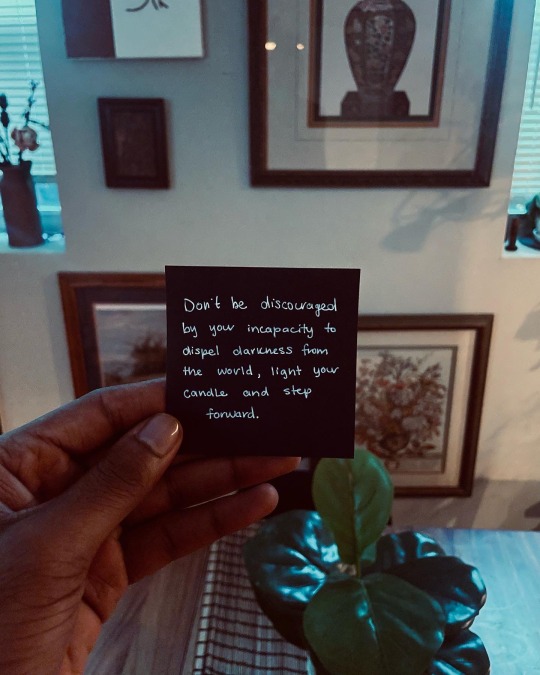 Don't be discouraged
by your incapacity to
dispel darkness from
the world, light your
candle and step
forward.